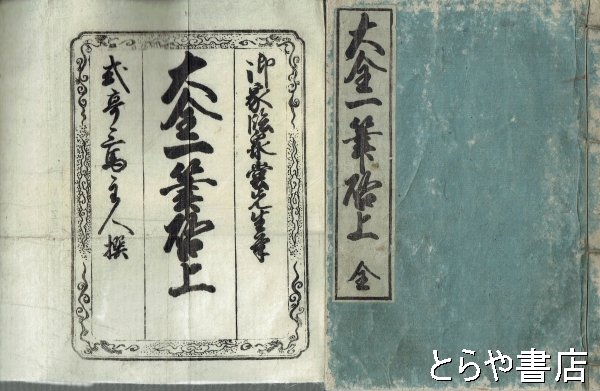 御家臨泉堂先生筆
大全一筆啓上
式亭三馬主人撰
大全一筆啓上 全
とらや書店